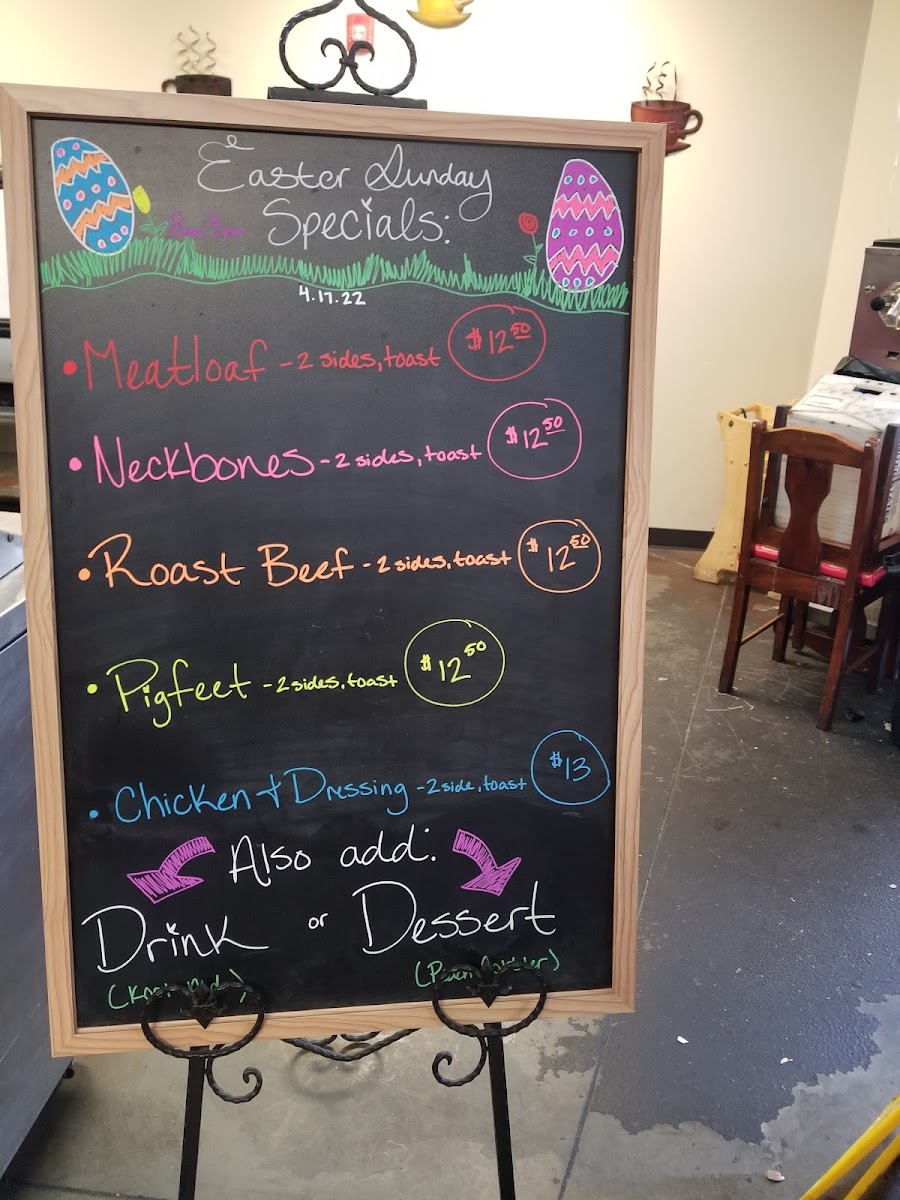 Easter Sunday
Specials:
4.17.22
• Meatloaf - 2 sides, toast $12.50
• Neckbones - 2 sides, toast $12.50
• Roast Beef - 2 sides, toast $12.50
• Pigfeet - 2 sides, toast $12.50
• Chicken & Dressing - 2 side, toast $13
Also add:
Drink or Dessert